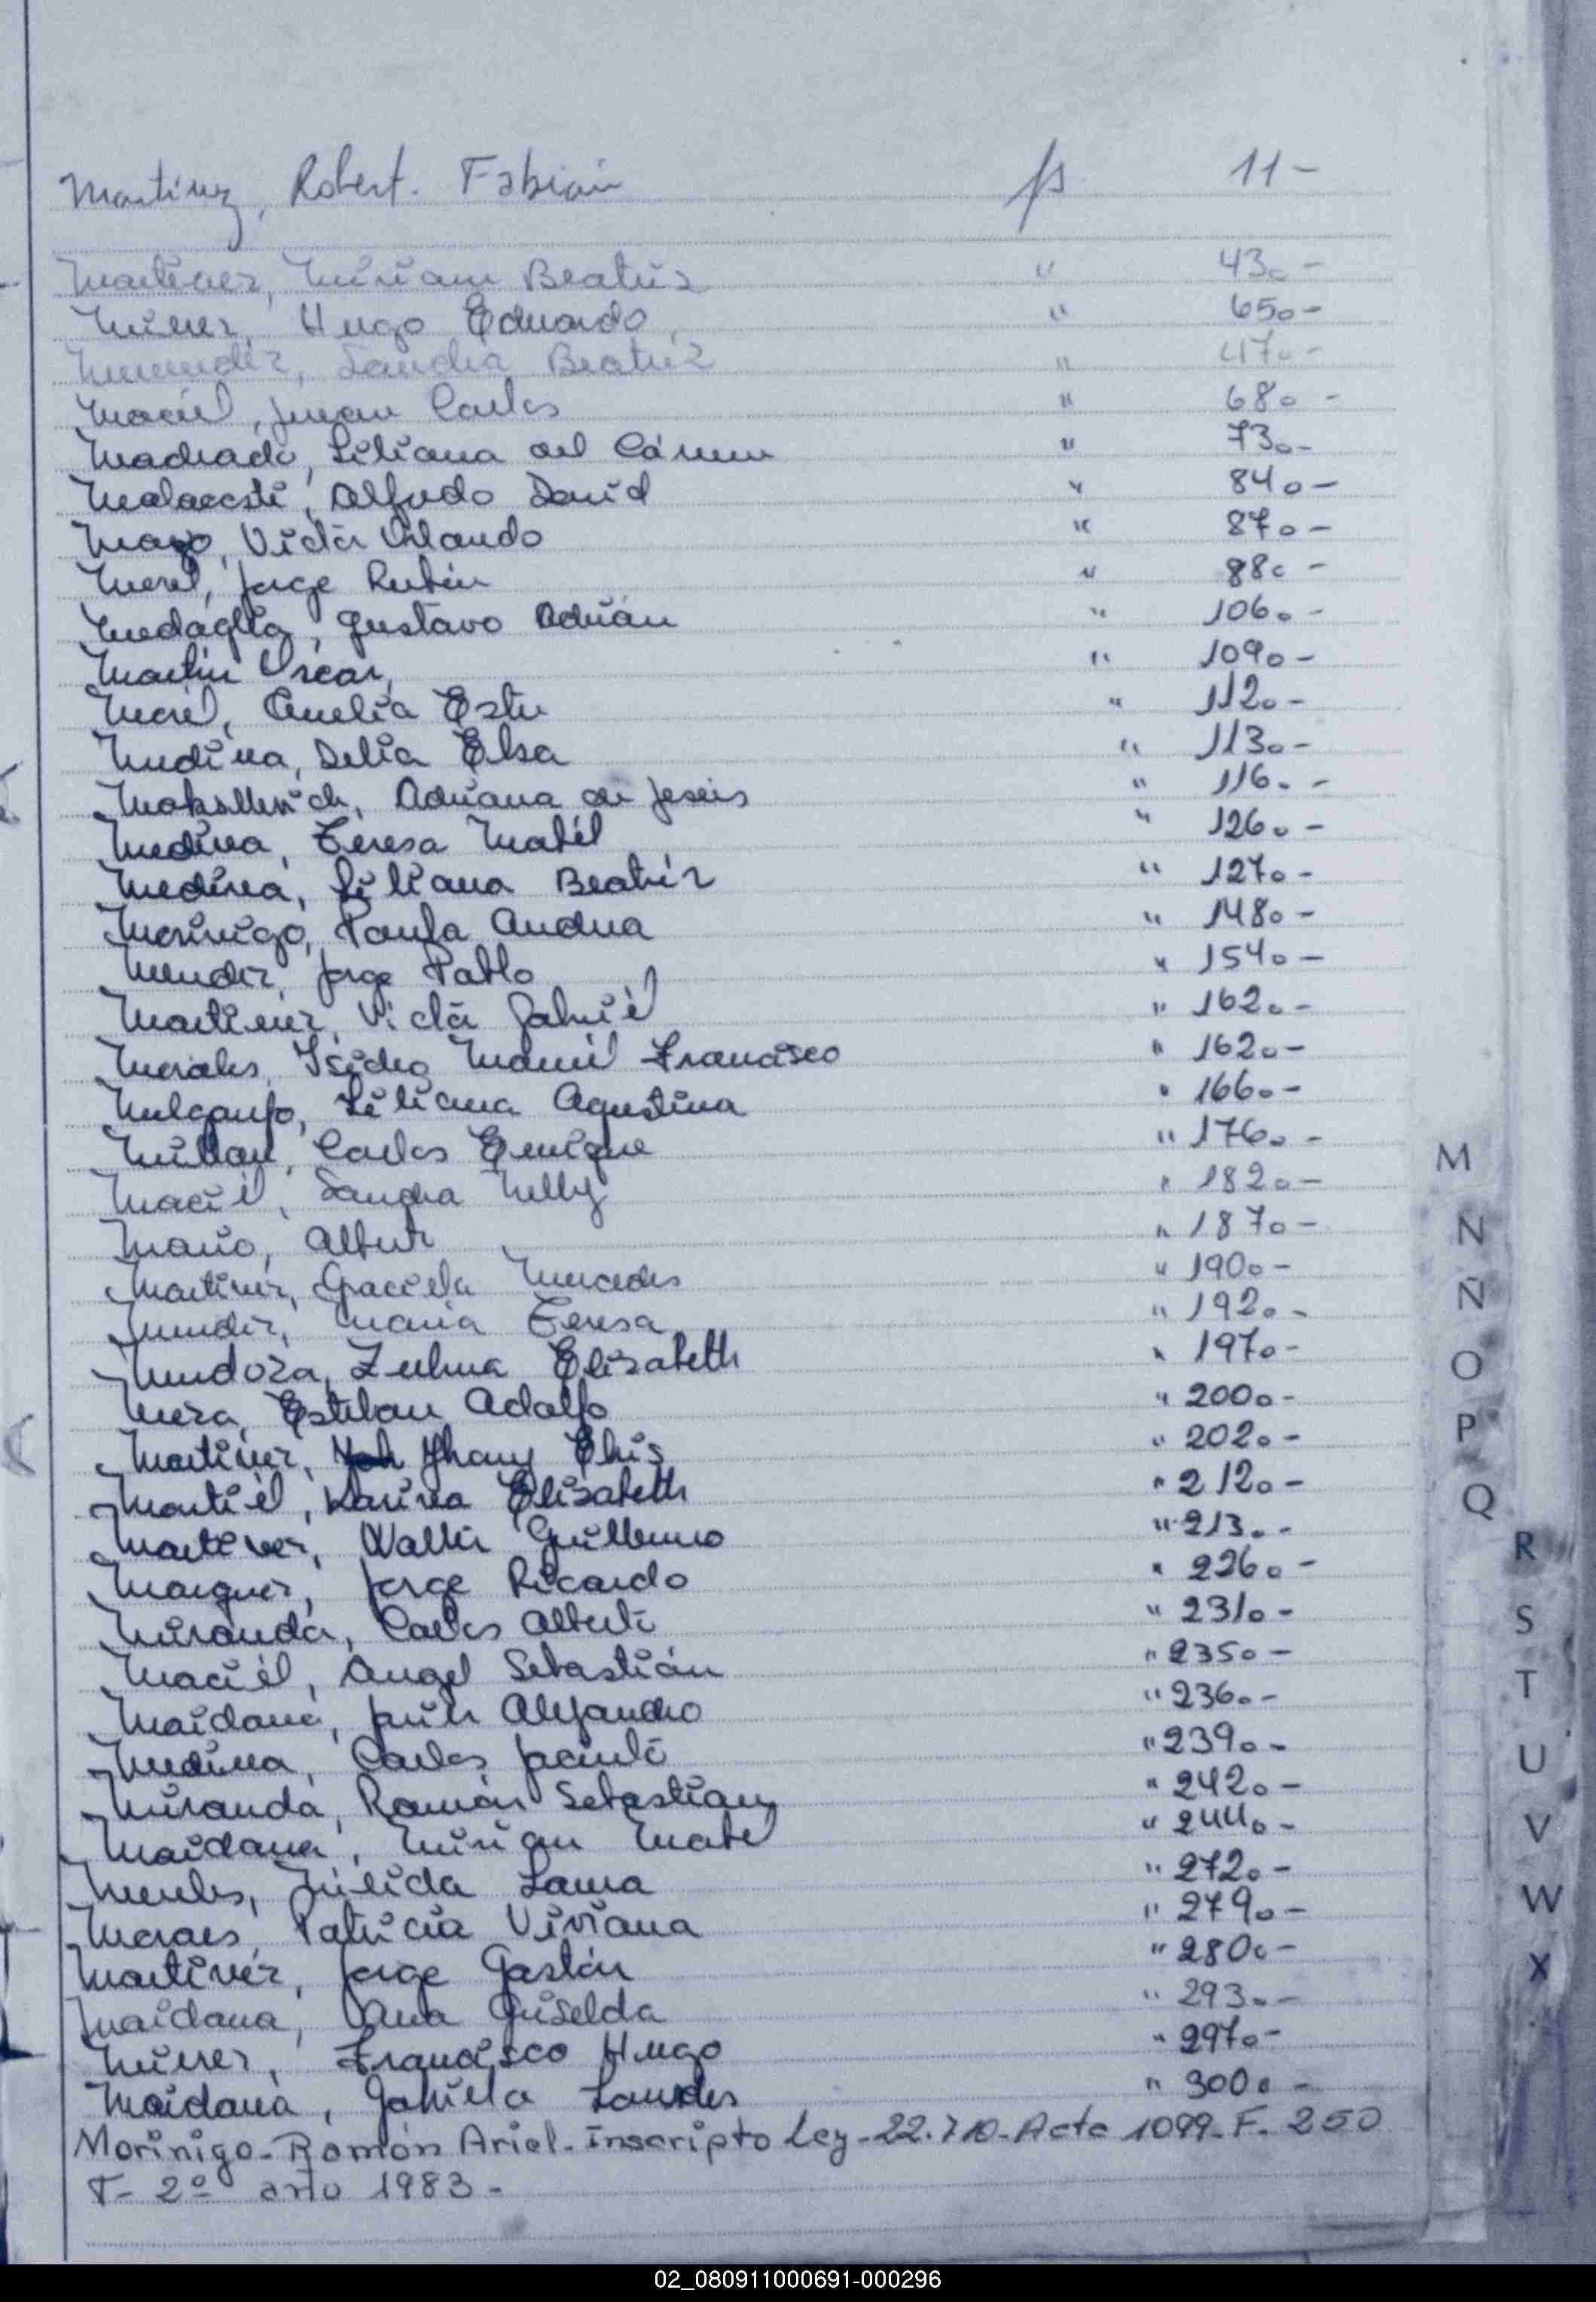 Martinez, Robert. Fabian fs 11-
Martinez, Miriam Beatriz " 430-
Miérez, Hugo Eduardo, " 650-
Menendez, Sandra Beatriz " 470-
Maciel, Juan Carlos " 680-
Machado, Liliana del Cármen " 730-
Alfredo David " 840-
Mazo, Victor Orlando " 870-
Merel, Jorge Rubén " 880-
Medaglia, Gustavo Adrián " 1060-
Martin Oscar, " 1090-
Amelia Ester " 1120-
Medina, Delia Elsa " 1130-
Adriana de Jesús " 1160-
Medina, Teresa Mabél " 1260-
Medina, Liliana Beatriz " 1270-
Morinigo, Paula Andrea " 1480-
Mendez, Jorge Pablo " 1540-
Martinez, Victor Gabriél " 1620-
Morales, Isidro Manuel Francisco " 1620-
Melgarejo, Liliana Agustina " 1660-
Millan, Carlos Enrique " 1760-
Maciél, Sandra Nelly " 1820-
Mario, Alberto " 1870-
Martinez, Graciela Mercedes " 1900-
Mendez, Maria Teresa " 1920-
Mendoza, Zulma Elizabeth " 1970-
Meza, Esteban Adolfo " 2000-
Martinez, Jhony Elvis " 2020-
Martiél, Karina Elizabeth " 2120-
Martinez, Walter Guillermo " 2130-
Marquez, Jorge Ricardo " 2260-
Miranda, Carlos Alberto " 2310-
Maciél, Angel Sebastián " 2350-
Maidana, Javier Alejandro " 2360-
Medina, Carlos Jacinto " 2390-
Miranda, Ramón Sebastian " 2420-
Maidana, Mirian Mabel " 2440-
Mereles, Julida Laura " 2720-
Moraes, Patricia Viviana " 2790-
Martinéz, Jorge Gastón " 2800-
Maidana, Ana Griselda " 2930-
Miérez, Francisco Hugo " 2970-
Maidana, Gabriela Lourdes " 3000-
Morinigo-Ramón Ariel-Inscripto Ley-22.710-Acta 1099-F. 250
T- 2º año 1983-
M
N
Ñ
O
P
Q
R
S
T
U
V
W
X
02_080911000691-000296